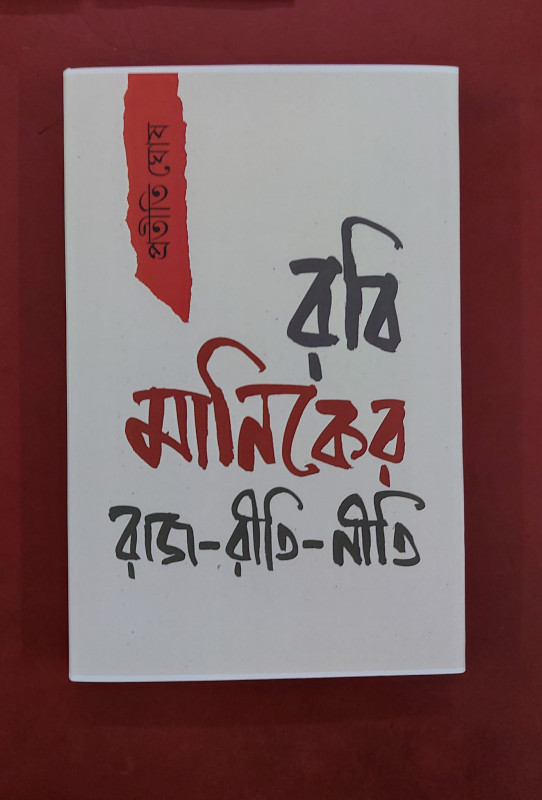 প্রতীতি ঘোষ
রবি
মানিকের
রাজ-রীতি-নীতি